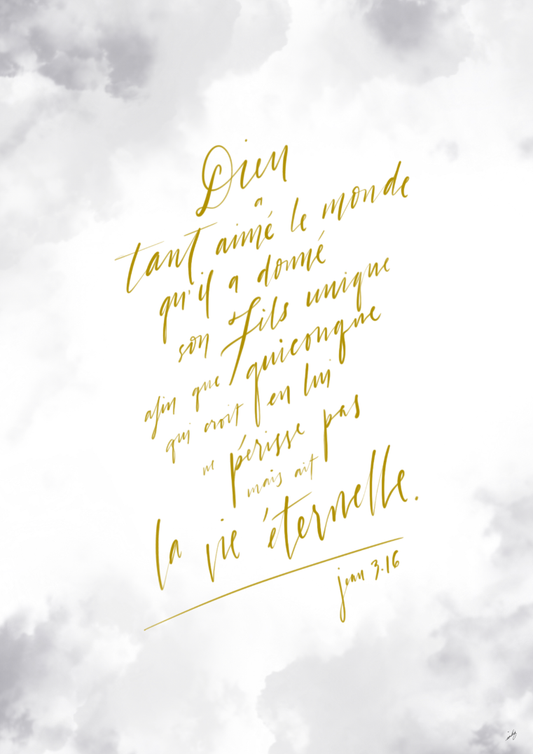 Dieu
a
tant aimé le monde
qu'il a donné
son Fils unique
afin que quiconque
qui croit en lui
ne périsse pas
mais ait
la vie éternelle.
jean 3.16